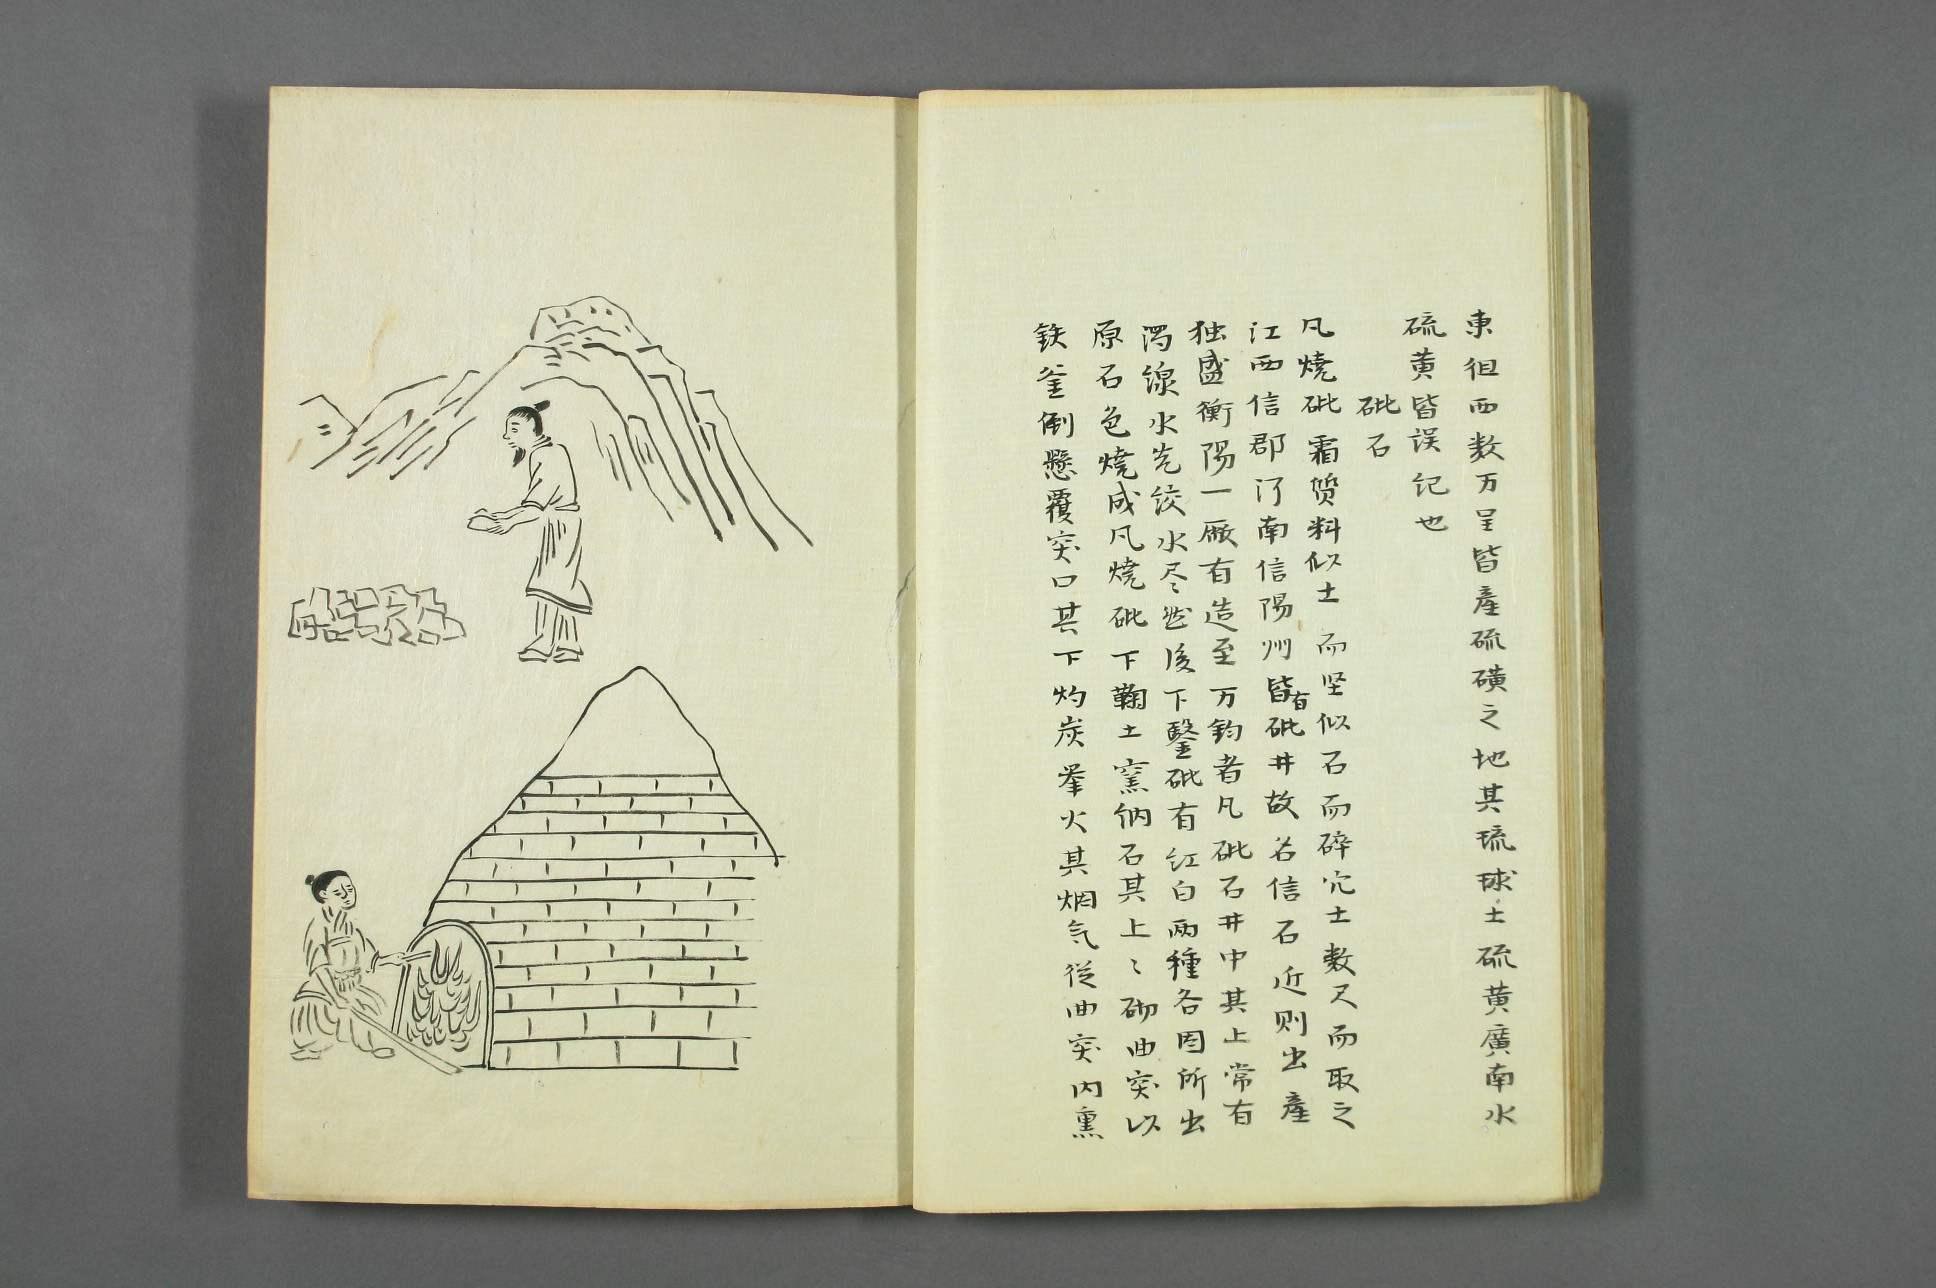 東徂西数万呈皆産硫磺之地其琉球土硫黄廣南水
硫黄皆误记也
砒石
凡燒砒霜质料似土而坚似石而碎穴土数尺而取之
江西信郡河南信陽州皆有砒井故名信石近则出産
独盛衡陽一厰有造至万鈞者凡砒石井中其上常有
濁綠水先绞水尽然後下鑿砒有红白两種各因所出
原石色燒成凡燒砒下鞠土窯纳石其上〻砌曲突以
鉄釜倒懸覆突口其下灼炭举火其烟气從曲突内熏